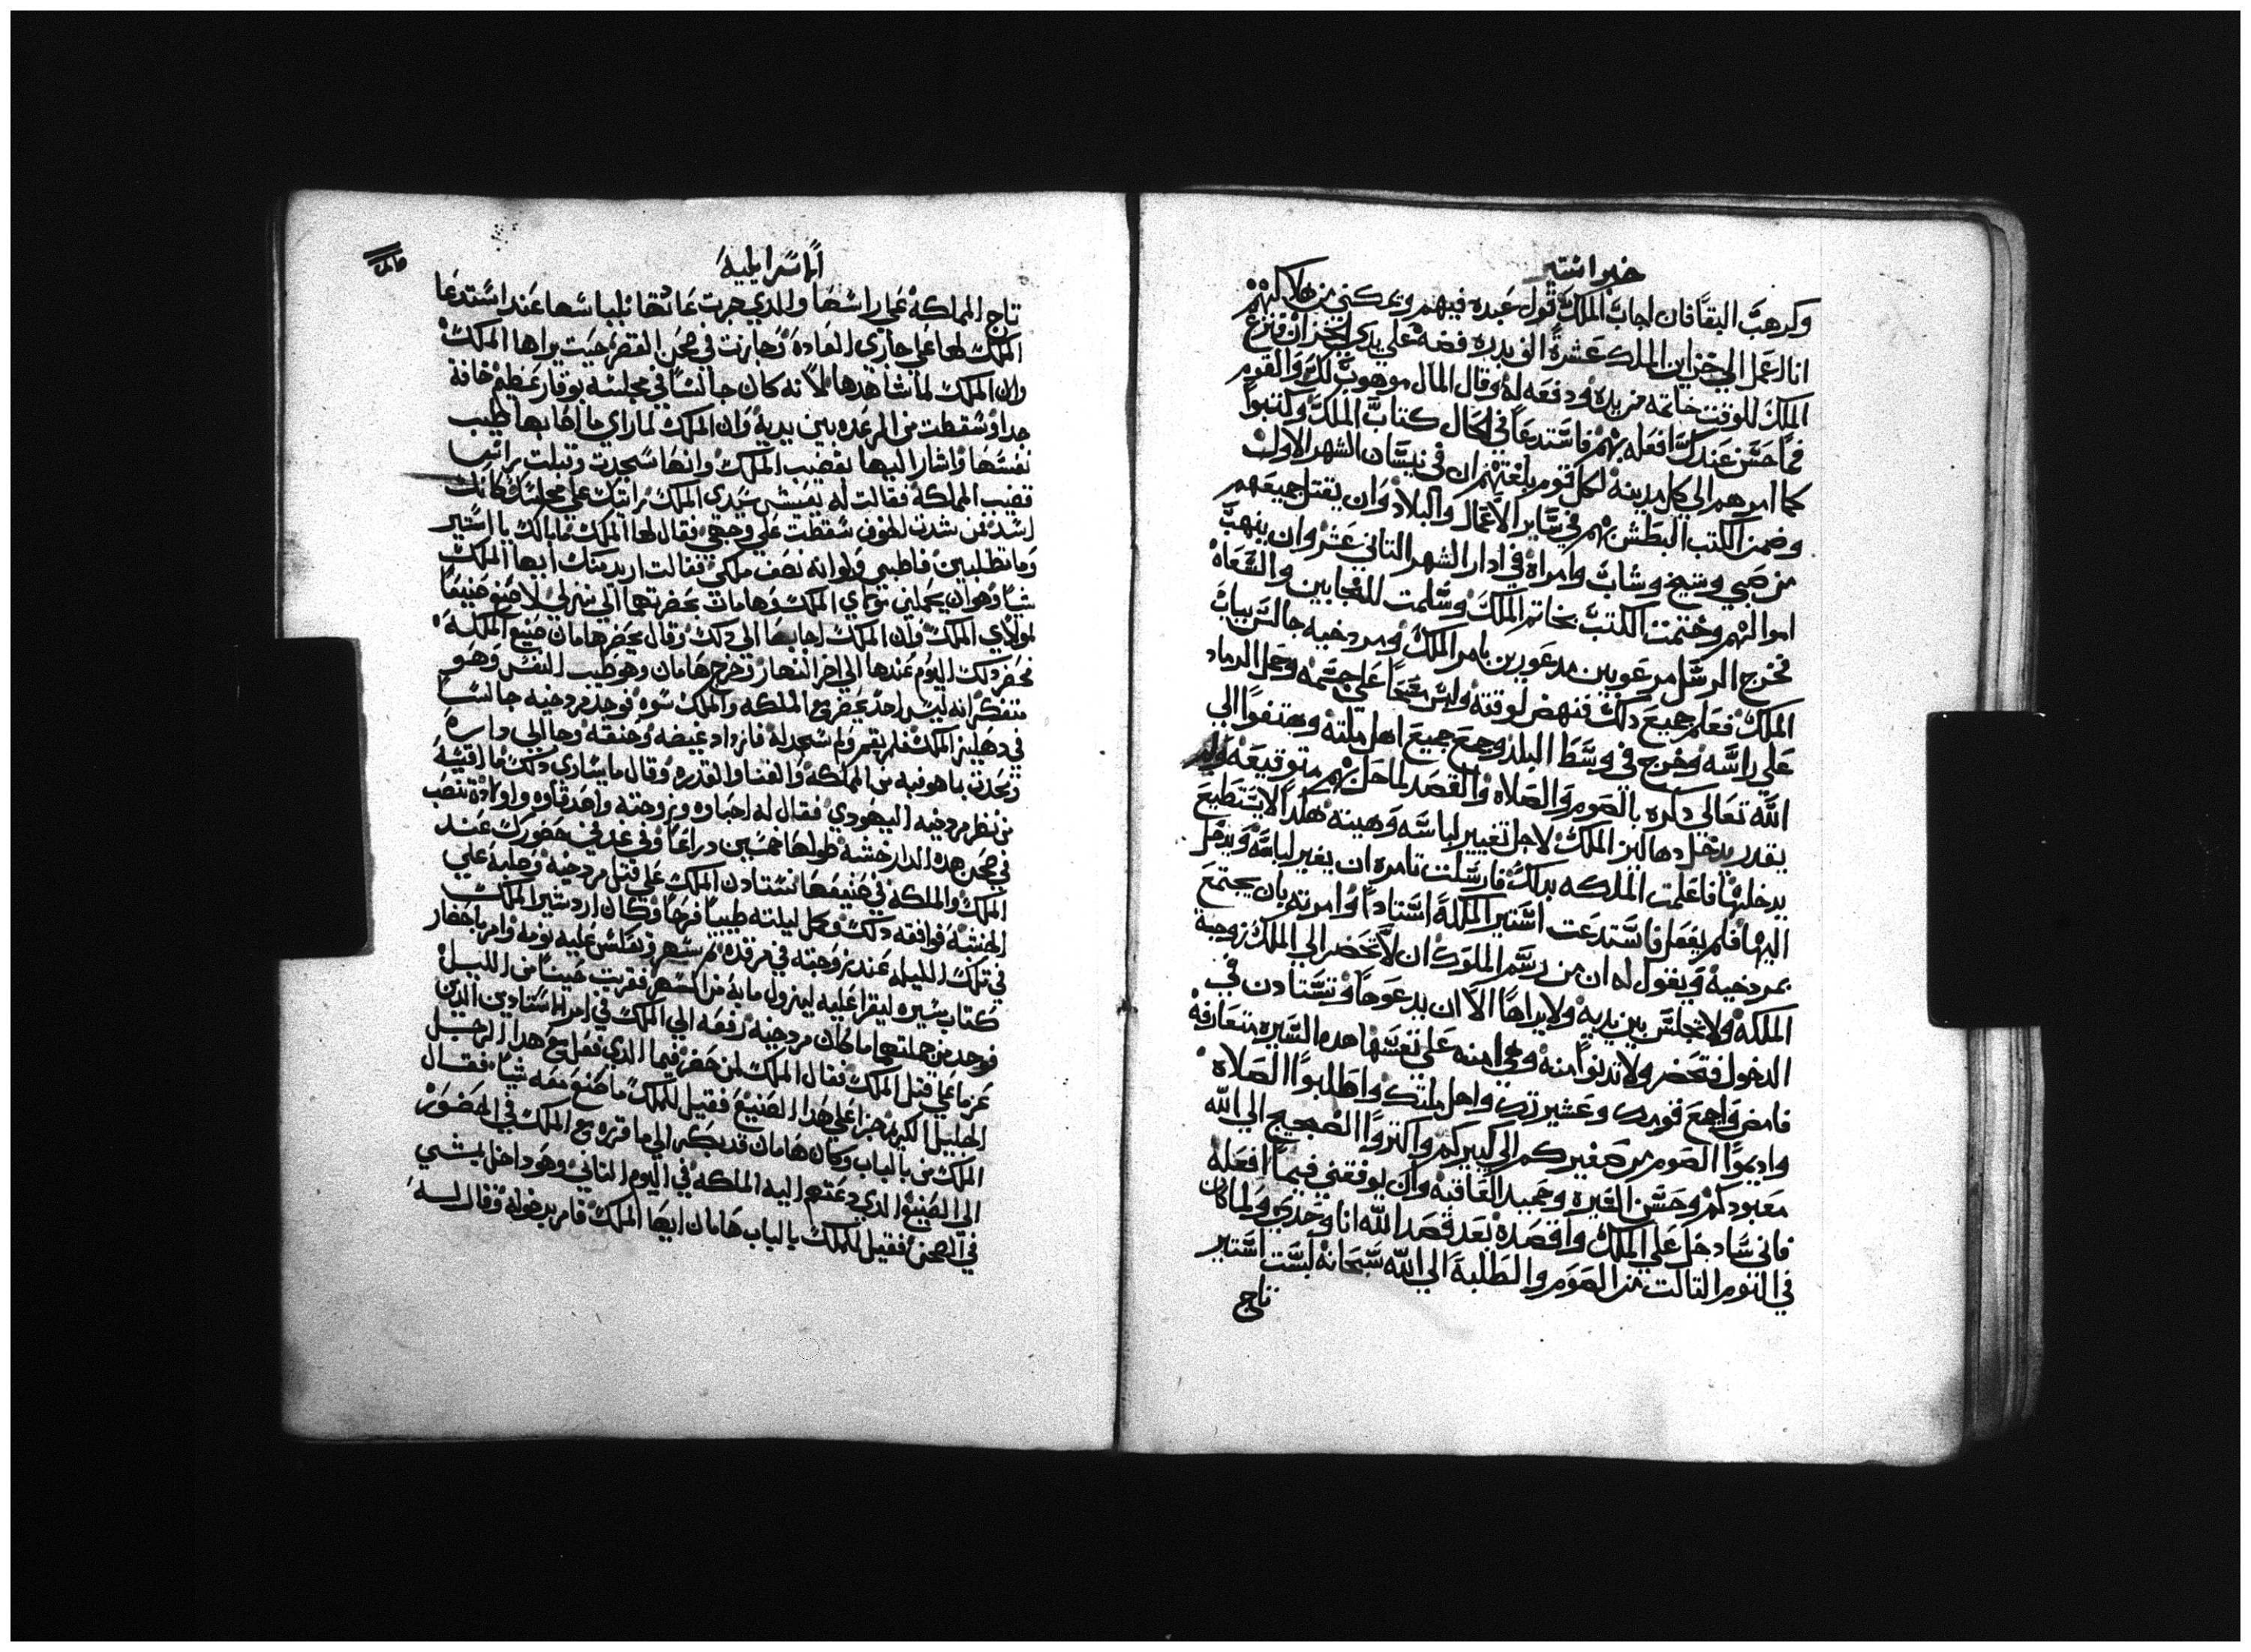 خبر استير
وكرهب البقا فان اجاب الملك قول عبده فيهم ويمكني من هلاكهم
انا احمل الي خزاين الملك عشرة الف بدره فضه علي يدي الخزان فنزع
الملك للوقت خاتمه من يده ودفعه له وقال المال موهوب لك والقوم
فمهما حسن عندك افعله بهم فاستدعا في الحال كتاب الملك وكتبوا
كما امرهم الي كل مدينه لكل قوم بلغتهم ان في نيسان الشهر الاول
وضمن الكتب البطش بهم في ساير الاعمال والبلاد وان يقتل جميعهم
من صبي وشيخ وشاب وامراه في ادار الشهر التاني عشر وان ينهب
اموالهم وختمت الكتب بخاتم الملك وسلمت للنجابين والسعاه
فخرج الرسل مرعوبين مدعورين بامر الملك ومردخيه جالس بباب
الملك فعلم جميع دلك فنهض لوقته ولبس مسحا علي جسمه وجعل الرماد
علي راسه وخرج في وسط البلد وجمع جميع اهل ملته وهتفوا الي
الله تعالي دكره بالصوم والصلاه والقصد لما حل بهم متوقيعه ولم
يقدر يدخل دهاليز الملك لاجل تغيير لباسه وهيته هكدا لا يستطيع
يدخلها فاعلمت الملكه بدلك فارسلت تامره ان يغير لباسه ويدخل
اليها فلم يفعل فاستدعت استير الملكة استادا وامرته بان يجتمع
بمردخيه ويقول له ان من رسم الملوك ان لا تحضر الي الملك زوجته
الملكه ولا تجلس بين يديه ولا يراها الا ان يدعوها وتستادن في
الدخول فتحضر ولا تدنوا منه وهي امنه علي نفسها هده السيره متعارفه
فامض واجمع قومك وعشيرتك واهل ملتك واطلبوا الصلاه
واديموا الصوم من صغيركم الي كبيركم واكتروا الضجيج الي الله
معبودكم وحسن الخيره وحميد العاقبه وان يوفقني فيما افعله
فاني سادخل علي الملك واقصده بعد قصد الله انا وحدي ولما كان
في اليوم التالت من الصوم والطلبة الي الله سبحانه لبست استير
تاج
الاسرايلية
تاج المملكه علي راسها والدي جرت عادتها بلباسها عند استدعا
الملك لها علي جاري العاده وجازت في صحن القصر حيت يراها الملك
وان الملك لما شاهدها لانه كان جالسا في مجلسه بوقار عظيم خافة
جدا وسقطت من الرعده بين يديه وان الملك لما راي ما اصابها طيب
نفسها واشار اليها بقضيب الملك وانها سجدت وقبلت راس
قضيب المملكه فقالت له يعيش سيدي الملك رايتك علي مجلسك كانك
اسد فمن شدت الخوف سقطت علي وجهي فقال لها الملك مابالك يا استير
وما تطلبين فاطلبي ولوانه نصف ملكي فقالت اريد منك ايها الملك
شيا وهو ان يجملني مولاي الملك وهامان بحضرتهما الي منزلي لاصنع صنيعا
لمولاي الملك وان الملك اجابها الي دلك وقال يحضر هامان صنيع الملكه
فحضر دلك اليوم عندها الي اخر النهار وخرج هامان وهو طيب النفس وهو
متفكر انه ليس احد يحضر مع الملكه والملك سوه فوجد مردخيه جالسا
في دهليز الملك فلم يقم ولم يسجد له فازداد غيضه وحنقه وجا الي داره
وتحدت بما هو فيه من المملكه والغنا والقدره وقال ما يساوي دلك ما اقيسه
من نظر مردخيه اليهودي فقال له احباوه وزوجته واصدقاوه واولاده تنصب
في صحن هده الدار خشبه طولها خمسين دراعا وفي غد في حضورك عند
الملك والملكه في صنيعها تستادن الملك علي قتل مردخيه وصلبه علي
الخشبه فوافقه دلك وكل ليلته طيبا فرحا وكان اردشير الملك
في تلك الليله عند زوجته في مرقده ثم سهر وتعكس عليه نومه وامر باحضار
كتاب سيره ليقرا عليه ليزول ما به من السهر فقريت حينا من الليل
فوجد من جملتها ما كان مردخيه رفعه الي الملك في امر الاستادين الدين
عزما علي قتل الملك فقال الملك لمن حضر فيما الدي فعل مع هدا الرجل
الجليل الكبير جزا علي هدا الصنيع فقيل للملك ما صنع معه شيا فقال
الملك من بالباب وكان هامان قد بكر الي ما قرره مع الملك في الحضور
الي الصنيع الدي دعته اليه الملكه في اليوم التاني وهو داخل يمشي
في الصحن فقيل للملك بالباب هامان ايها الملك فامر بدخوله وقال له